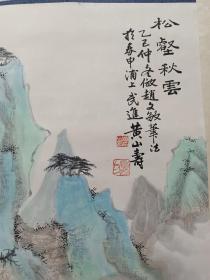 松壑秋雲
乙巳仲冬倣趙文敏筆法
於春申浦上武進黄山壽